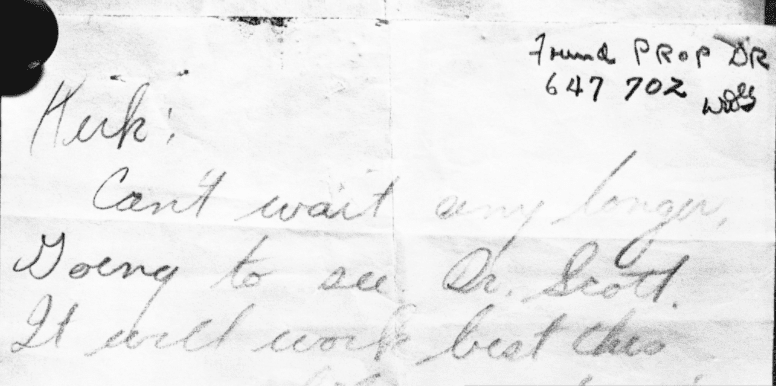 Found PROP DR
647 702
Kirk:
Can't wait any longer,
Going to see Dr. Scott.
It will work best this